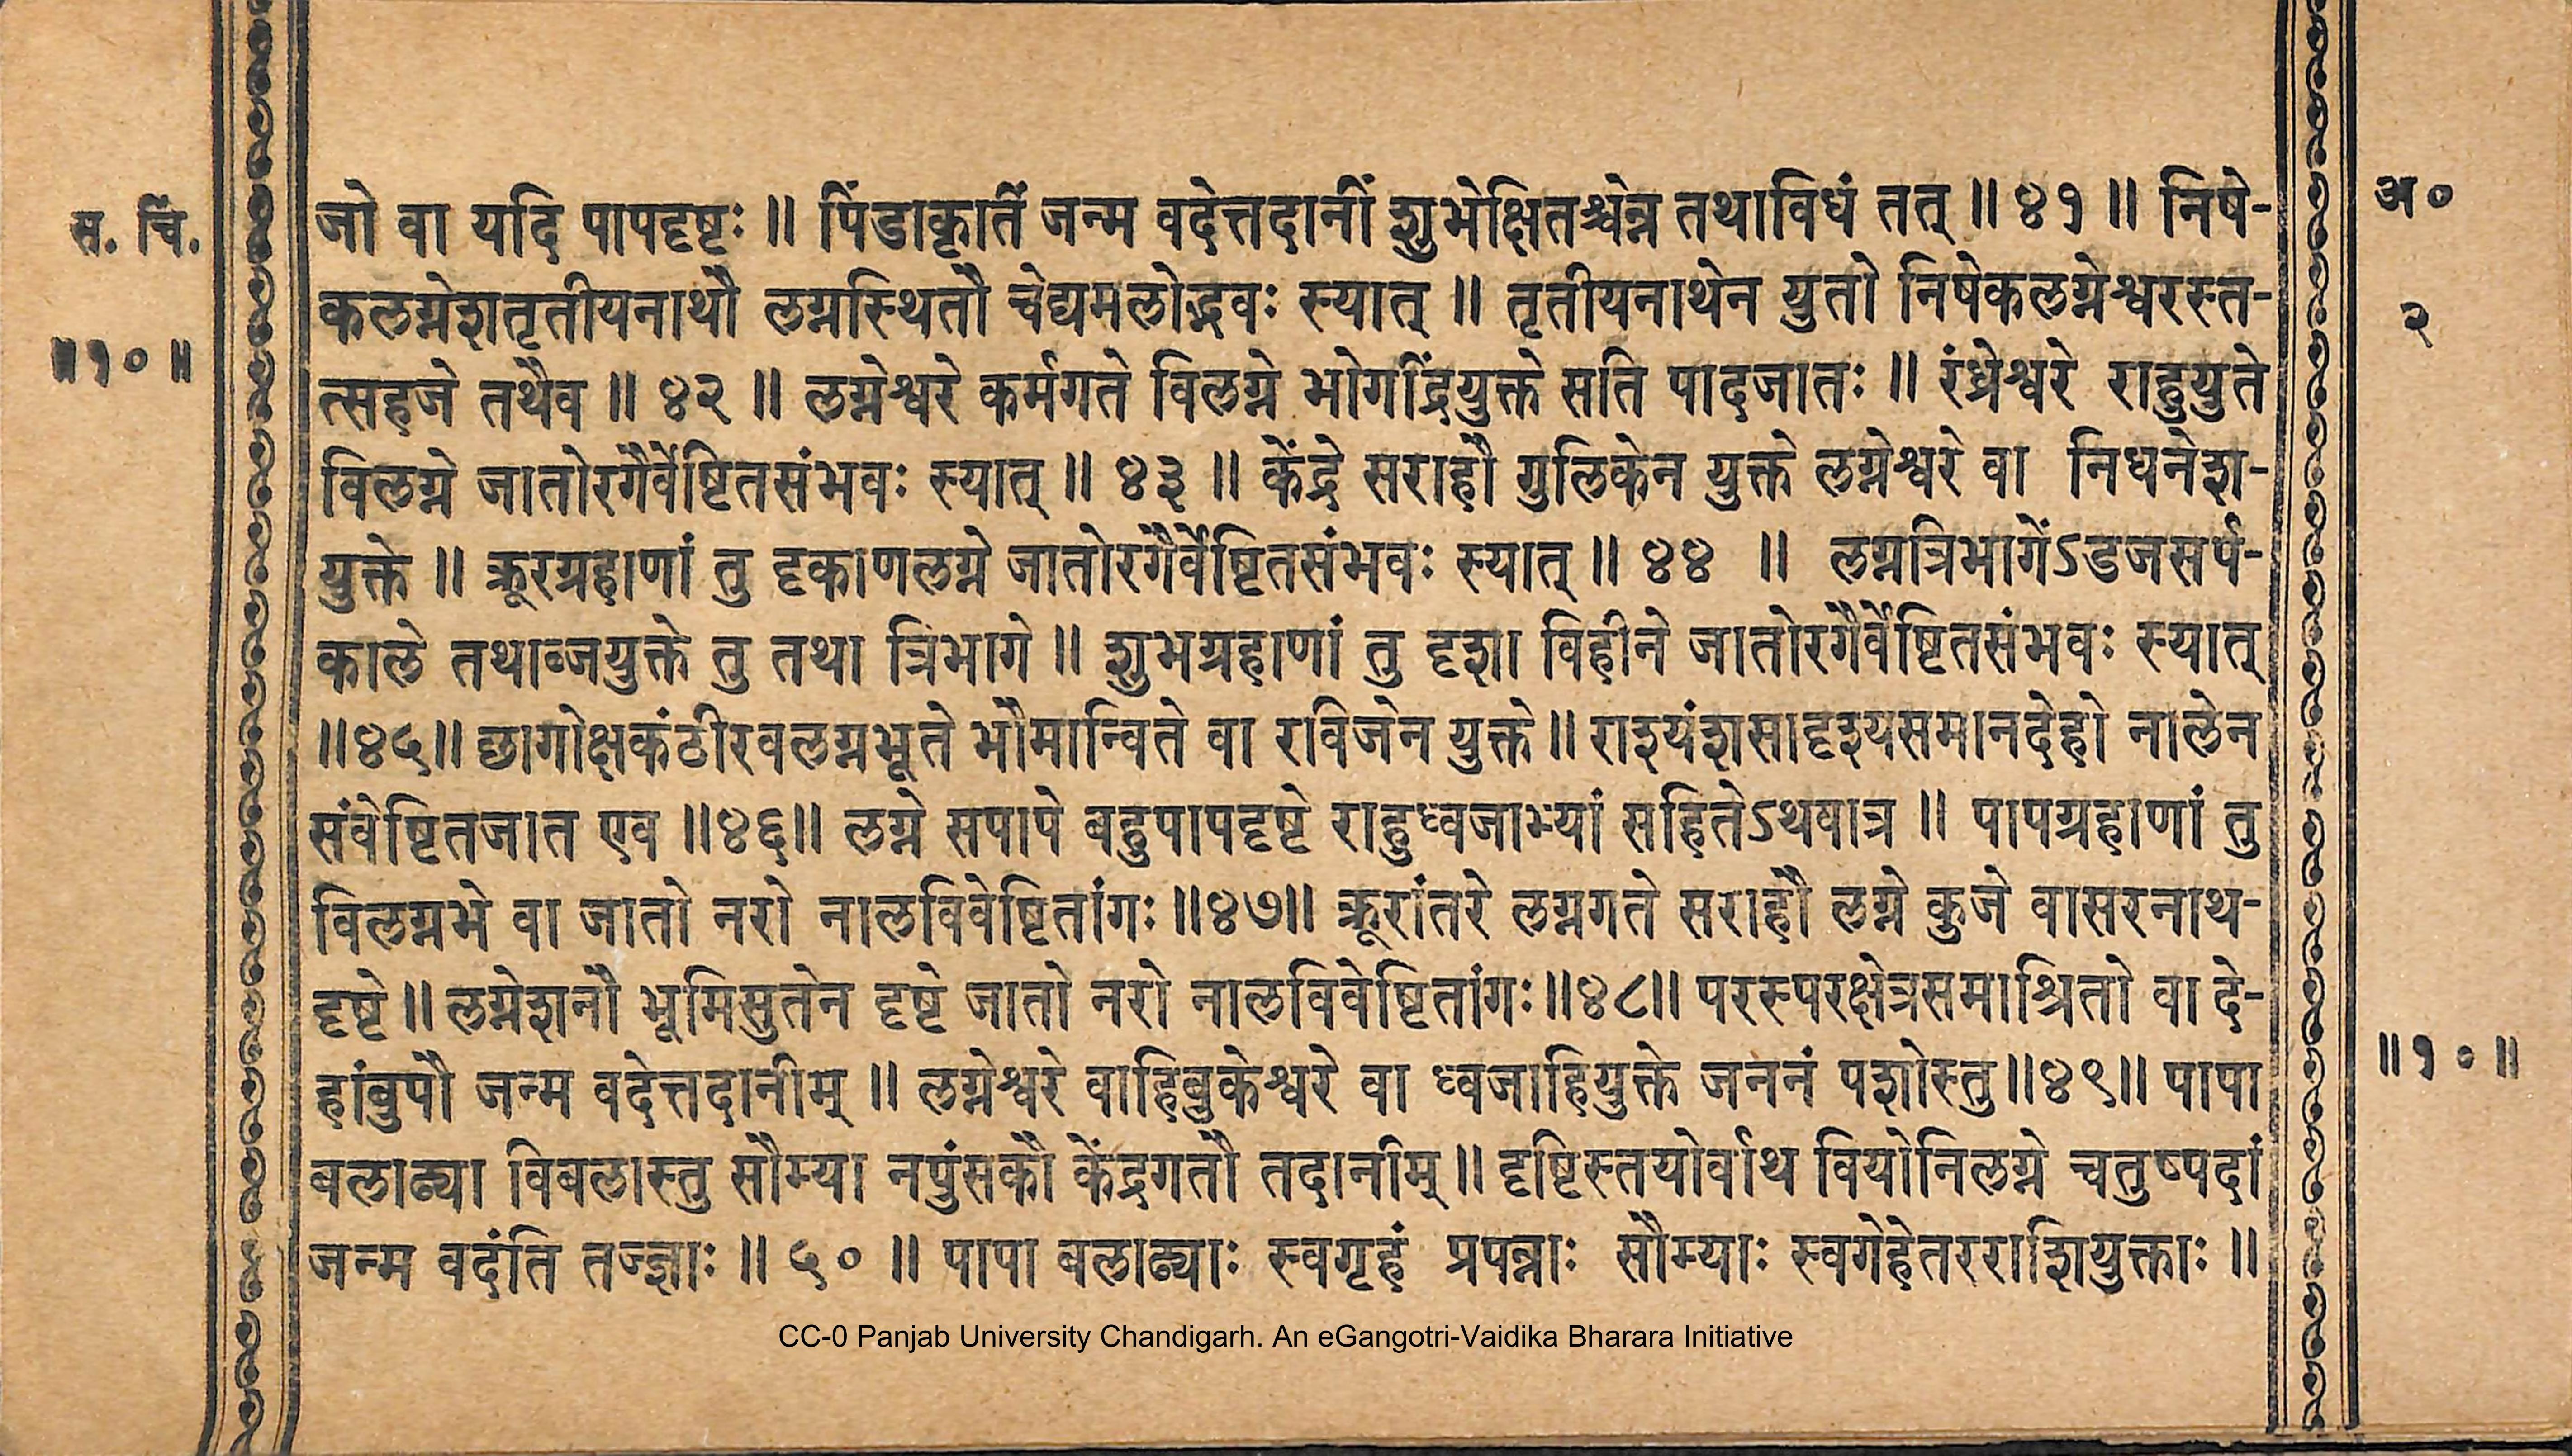 स. चिं.
॥१०॥
जो वा यदि पापदृष्टः ॥ पिंडाकृतिं जन्म वदेत्तदानीं शुभेक्षितश्चेन्न तथाविधं तत् ॥ ४१ ॥ निषे-
कलग्नेशतृतीयनाथौ लग्नस्थितौ चेद्यमलोद्भवः स्यात् ॥ तृतीयनाथेन युतो निषेकलग्नेश्वरस्त-
त्सहजे तथैव ॥ ४२ ॥ लग्नेश्वरे कर्मगते विलग्ने भोगींद्रयुक्ते सति पादजातः ॥ रंध्रेश्वरे राहुयुते
विलग्ने जातोरगैर्वेष्टितसंभवः स्यात् ॥ ४३ ॥ केंद्रे सराहौ गुलिकेन युक्ते लग्नेश्वरे वा निधनेश-
युक्ते ॥ क्रूरग्रहाणां तु दृकाणलग्ने जातोरगैर्वेष्टितसंभवः स्यात् ॥ ४४ ॥ लग्नत्रिभागेंऽडजसर्प-
काले तथाब्जयुक्ते तु तथा त्रिभागे ॥ शुभग्रहाणां तु दृशा विहीने जातोरगैर्वेष्टितसंभवः स्यात्
॥४५॥ छागोक्षकंठीरवलग्नभूते भौमान्विते वा रविजेन युक्ते ॥ राश्यंशसादृश्यसमानदेहो नालेन
संवेष्टितजात एव ॥४६॥ लग्ने सपापे बहुपापदृष्टे राहुध्वजाभ्यां सहितेऽथवात्र ॥ पापग्रहाणां तु
विलग्नभे वा जातो नरो नालविवेष्टितांगः ॥४७॥ क्रूरांतरे लग्नगते सराहौ लग्ने कुजे वासरनाथ-
दृष्टे ॥ लग्नेशनौ भूमिसुतेन दृष्टे जातो नरो नालविवेष्टितांगः ॥४८॥ परस्परक्षेत्रसमाश्रितो वा दे-
हांबुपौ जन्म वदेत्तदानीम् ॥ लग्नेश्वरे वाहिबुकेश्वरे वा ध्वजाहियुक्ते जननं पशोस्तु ॥४९॥ पापा
बलाढ्या विबलास्तु सौम्या नपुंसकौ केंद्रगतौ तदानीम् ॥ दृष्टिस्तयोर्वाथ वियोनिलग्ने चतुष्पदां
जन्म वदंति तज्ज्ञाः ॥ ५० ॥ पापा बलाढ्याः स्वगृहं प्रपन्नाः सौम्याः स्वगेहेतरराशियुक्ताः ॥
अ०
२
॥१०॥
CC-0 Panjab University Chandigarh. An eGangotri-Vaidika Bharara Initiative